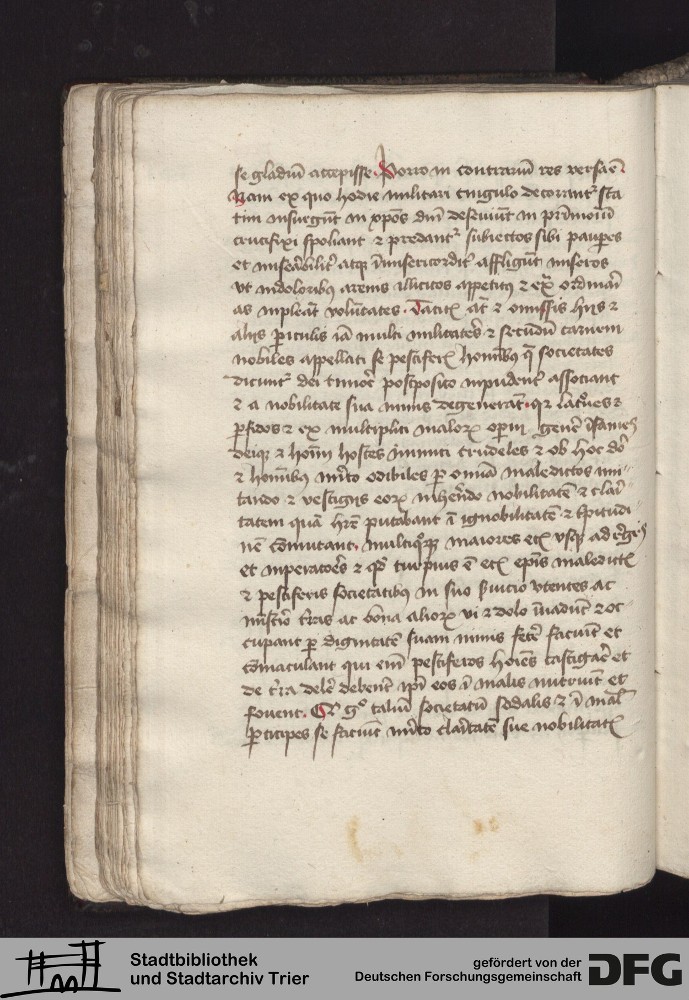 se gladiu accepisse. Porro in contrariu res versa e.
Nam ex quo hodie militari cingulo decorant sta
tim insurgut in xpos dni deseviut in primoniu
crucifixi spoliant ⁊ predant subiectos sibi paupes
et miseabilit atq inmisericordit affligut miseros
vt in doloribus illicitos appetitus ⁊ ex ordinari
as inpleat volutates. at ⁊ omissis hiis ⁊
aliis piculis ia multi militares ⁊ secundu carnem
nobiles appellati se pestiferis hominibus q societates
dicunt dei timore postposito inpudent associant
⁊ a nobilitate sua nimis degenerat. qr latrones ⁊
pfidos ⁊ ex multiplici malorum opum gene isames
deiq ⁊ homi hostes inimici crudeles ⁊ ob hoc deo
⁊ hominibus mito odibiles p omia maledictos imi
tando ⁊ vestigiis eorum inherendo nobilitate ⁊ clari
tatem qua hre putabant i ignobilitate ⁊ turpitudi
ne comutant. multiqoq maiores etia vsq ad reges
et imperatores ⁊ qd turpius e etia epis maledictis
⁊ pestiferis societatibus in suo suicio vtentes ac
terras ac bona aliorum vi ⁊ dolo inuadut ⁊ oc
cupant p dignitate suam nimis feda faciut et
comaculant qui eni pestiferos hoies castigare et
de terra dele debent ipi eos i malis nutriut et
fouent. go taliu societatu sodalis ⁊ i mal
pticipes se faciut mito claritate sue nobilitatis
Stadtbibliothek
und Stadtarchiv Trier
gefördert von der
Deutschen Forschungsgemeinschaft
DFG